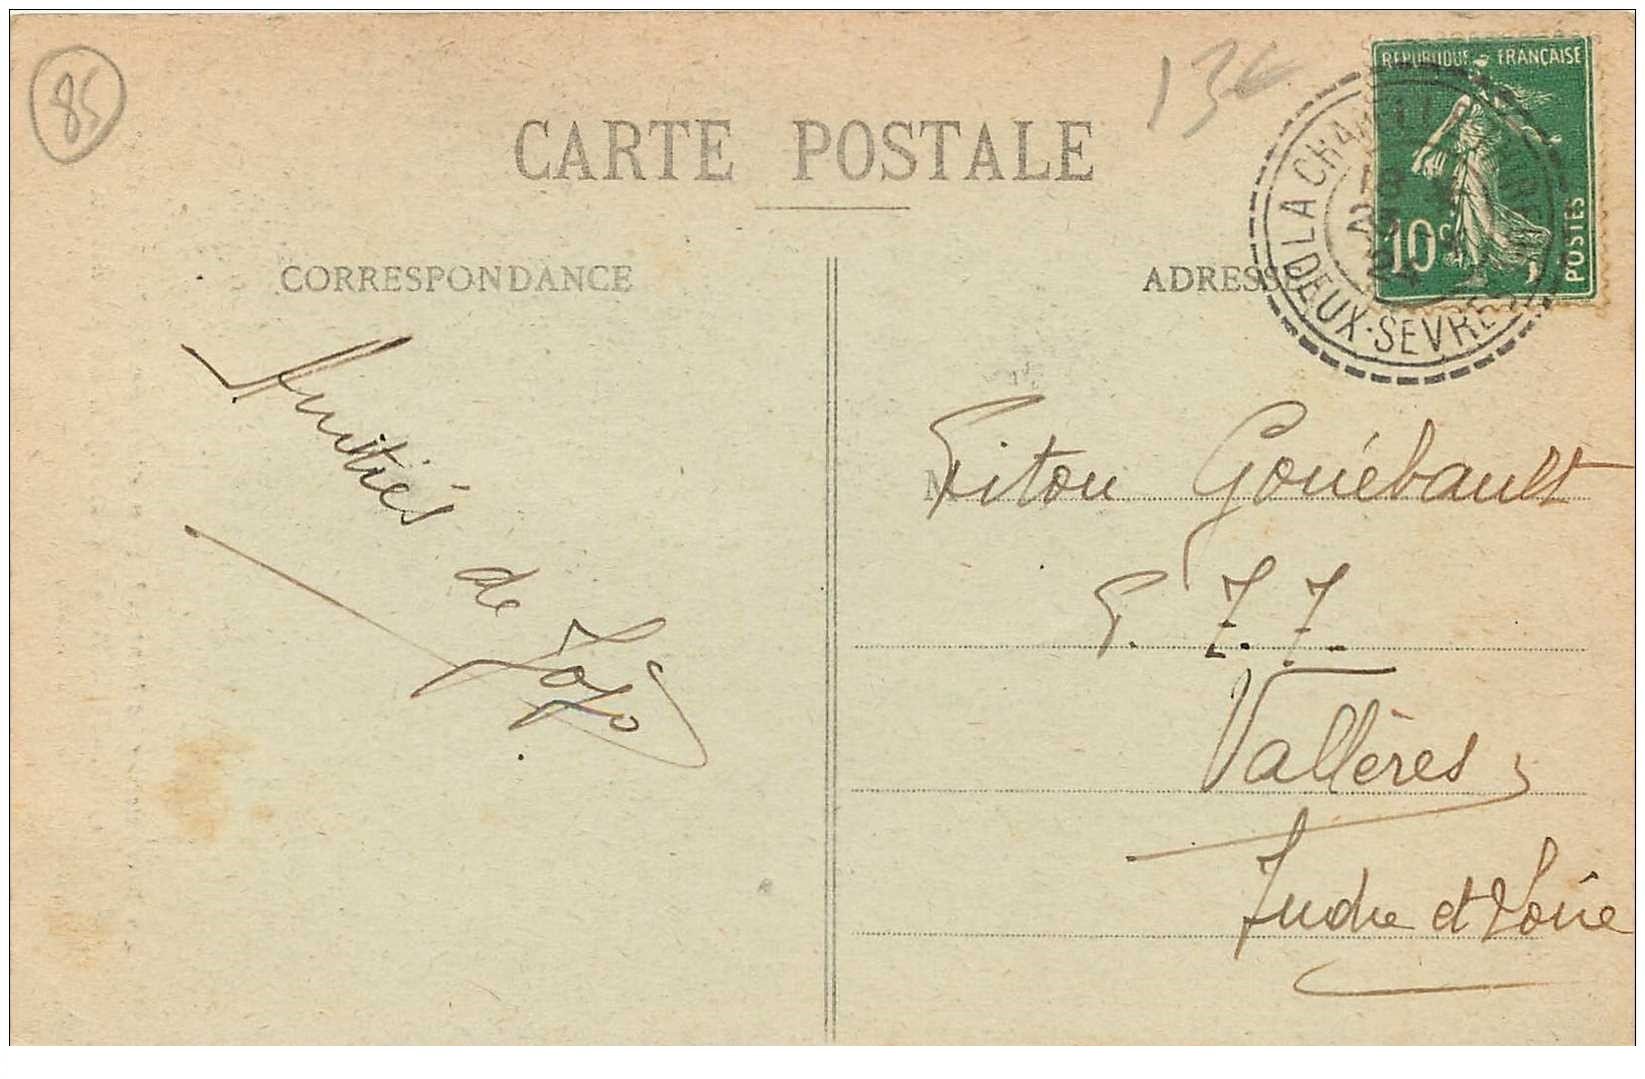 85
13€
RÉPUBLIQUE FRANÇAISE
10c
POSTES
LA CHA
DEUX-SEVRES
CARTE POSTALE
CORRESPONDANCE
ADRESSE
Amitiés
de
Jojo
M
Titou Gouébault
Vallères
Indre et Loire